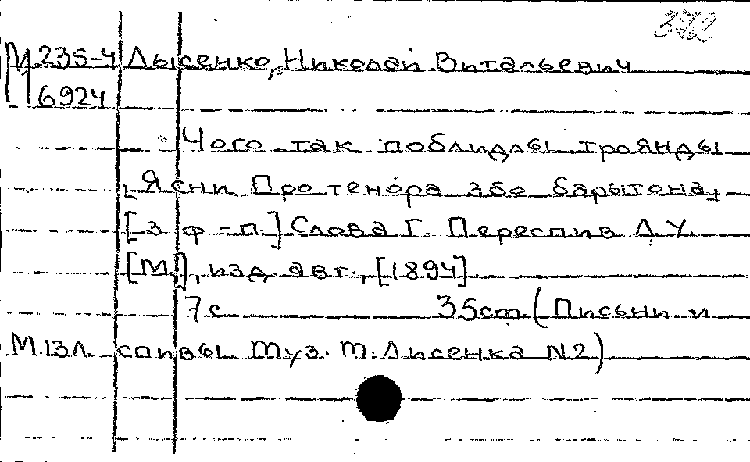 372
М 235-4 Лысенко, Николай Витальевич
6924
Чого так поблидлы троянды
Ясни Про тенора або барытона,
[з ф-п.] Слова Г. Переспив Л.У.
[М.], изд. авт., [1894]
7 с 35 cm. (Письни и
М.13л. спивы Муз. М. Лисенка №2)